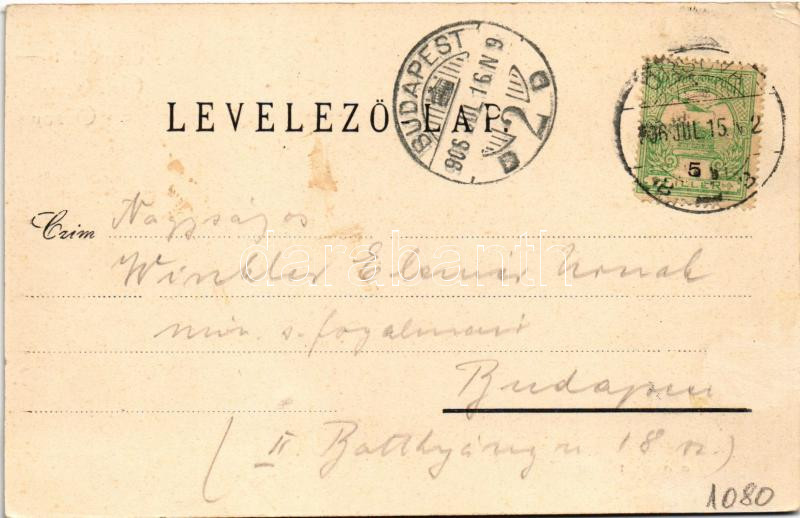 LEVELEZŐ LAP.
BUDAPEST
906 JUL 16 N 9
2
906 JUL 15 N 2
5
FILLER
Czim Nagyságos
Winkler Elemér Urnak
min. s. fogalmazó
Budapest
(II Batthyány u 18 sz.)
darabanth
1080